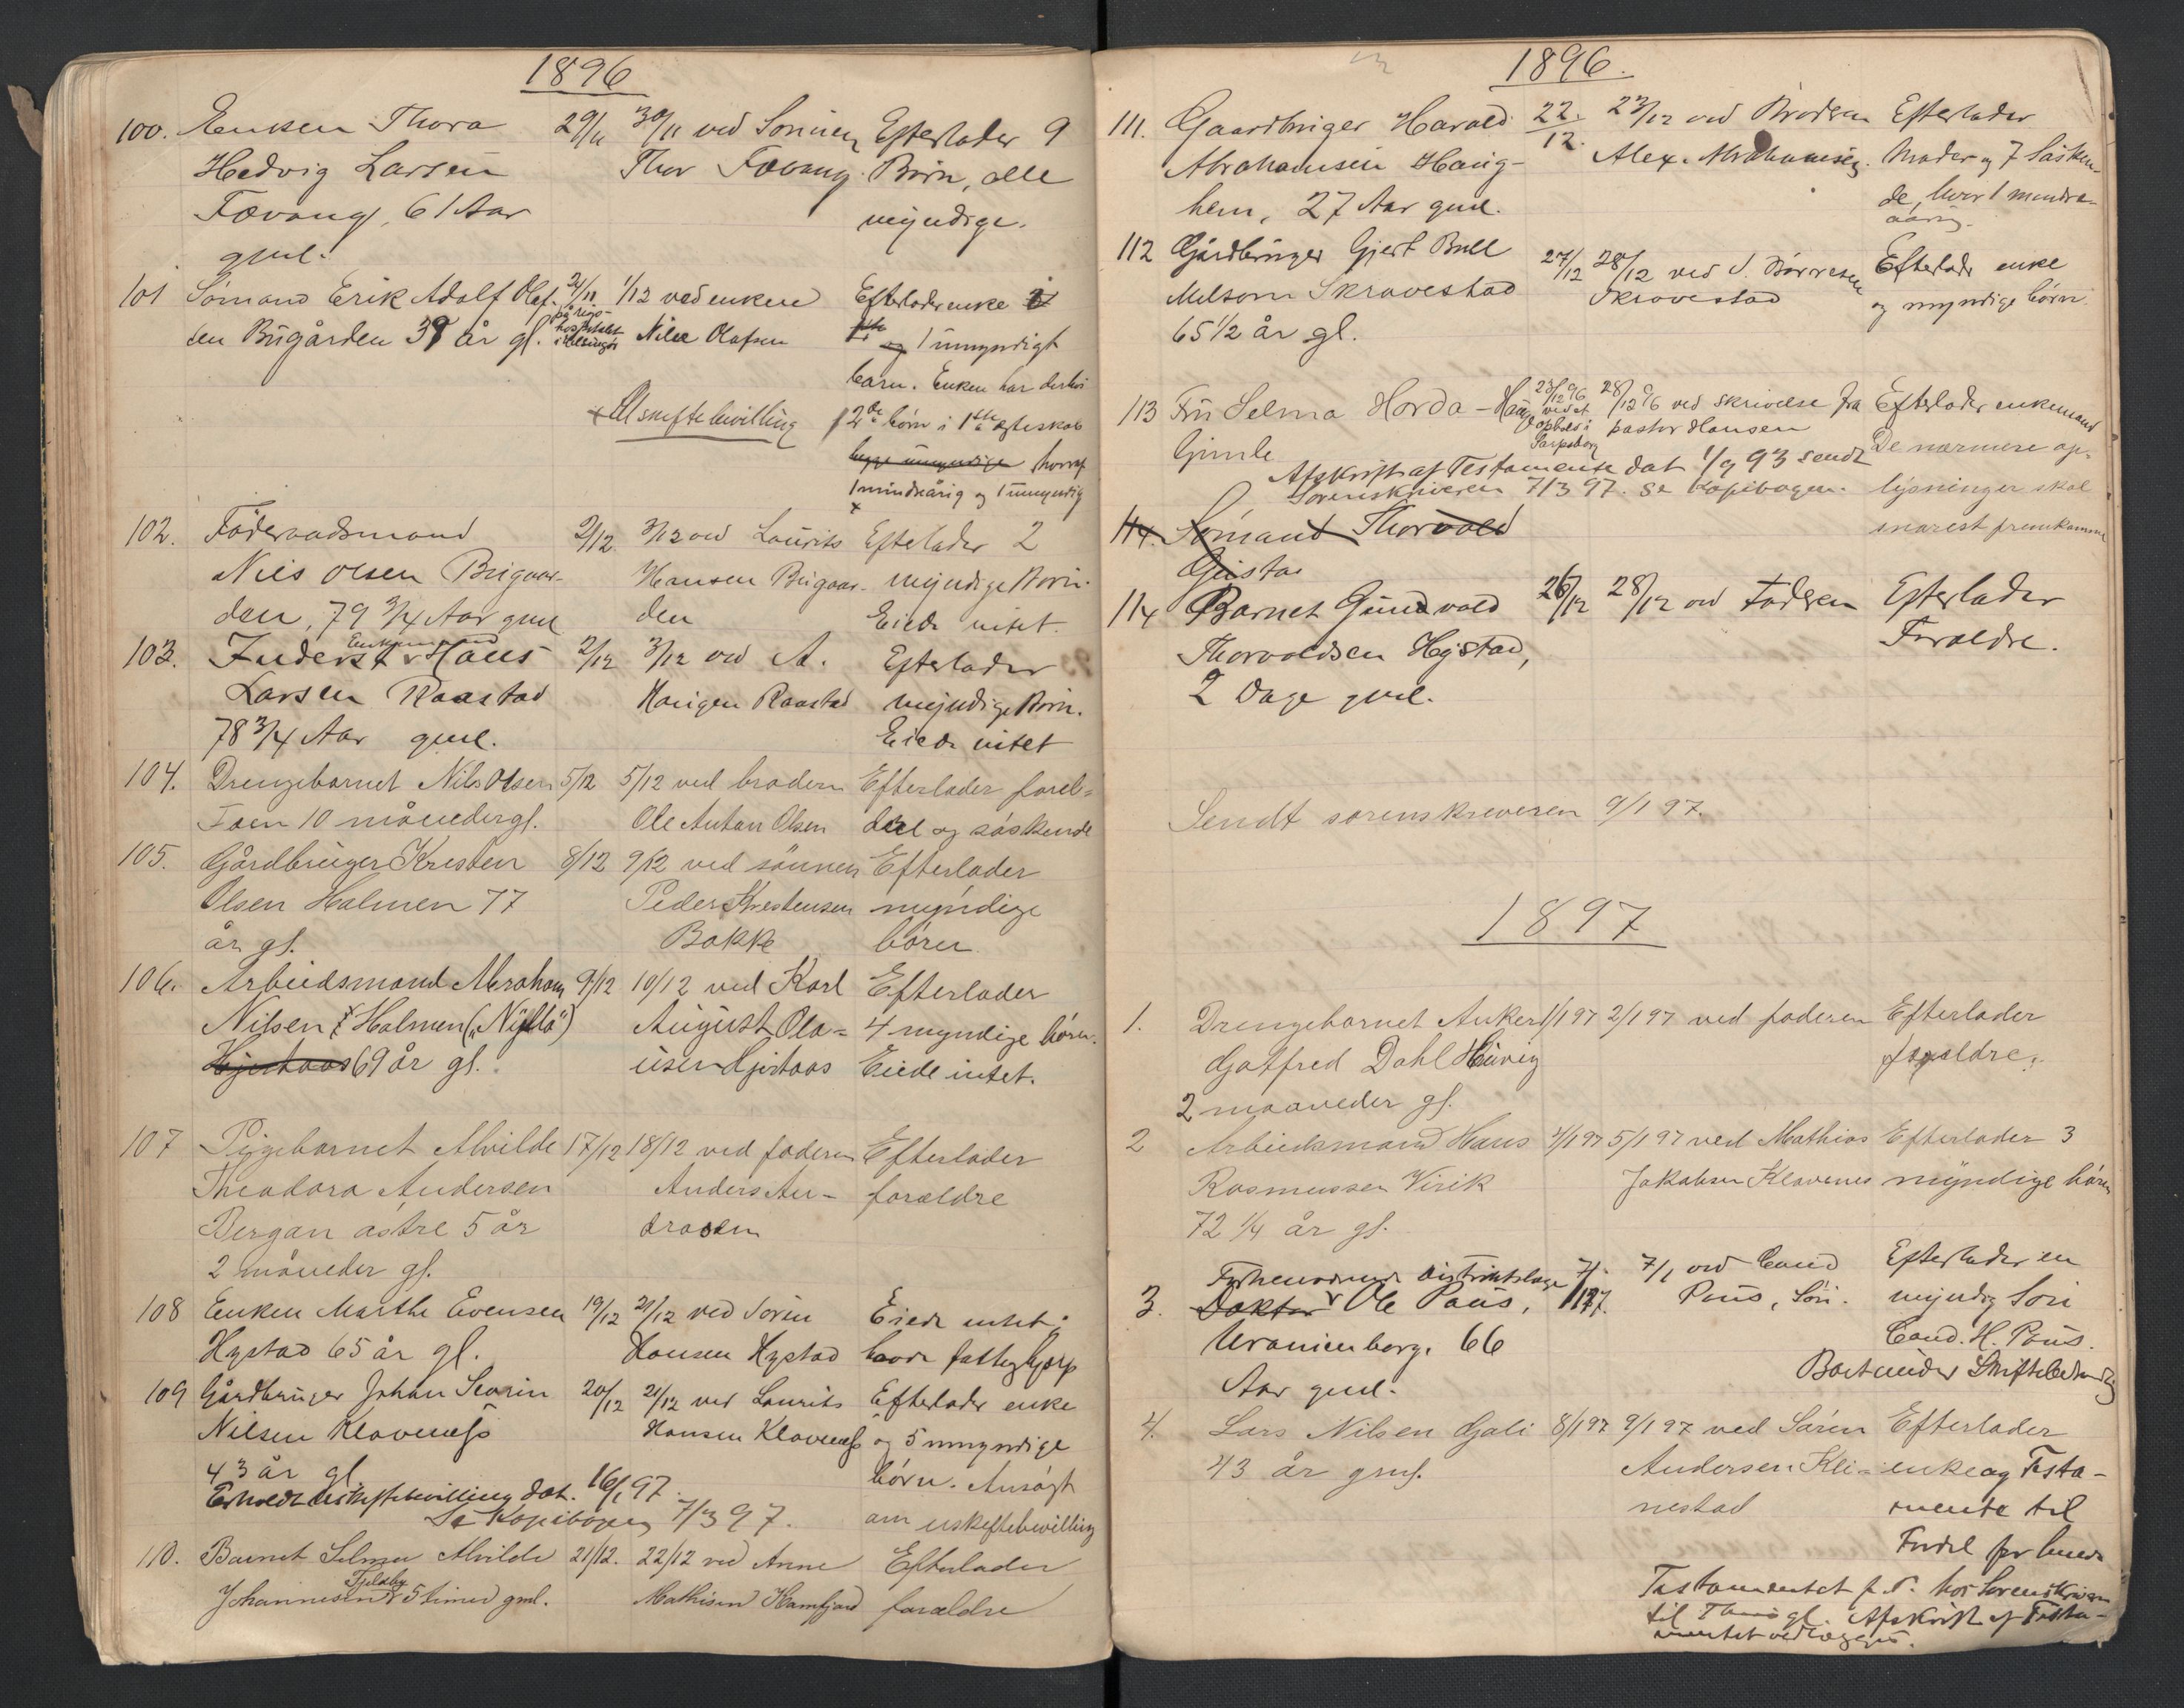 1896
100. Enken Thora 29/11 30/11 ved Sönnen Efterlader 9
Hedvig Larsen Thor Fævang. Börn, alle
Fævang, 61 Aar myndige.
gml.
101 Sömand Erik Adolf Olaf- 24/11 1/12 ved enken Efterlader enke
sen Bugården 39 år gl. på hospitalet i Helsingör Nilla Olafsen og 1 umyndigt
barn. Enken har
Uskiftebevilling 2de börn i 1ste ægteskab
begge umyndige hvoraf
1 mindreårig og 1 umyndig
102. Föderaadsmand 2/12. 3/12 ved Laurits Efterlader 2
Nils Olsen Bugaar- Hansen Bugaar- myndige Börn.
den, 79 3/4 Aar gml den Eiede intet.
103. Inderst Enkemand Hans 2/12 3/12 ved A. Efterlader
Larsen Raastad Haugen Raastad myndige Börn.
78 3/4 Aar gml. Eiede intet
104. Drengebarnet Nils Olsen 5/12 5/12 ved broderen Efterlader foræl-
Foen 10 måneder gl. Ole Anton Olsen dre og söskende
105. Gårdbruger Kristen 8/12 9/12 ved sönnen Efterlader
Olsen Holmen 77 Peder Kristensen myndige
år gl. Bakke börn
106. Arbeidsmand Abraham 9/12 10/12 ved Karl Efterlader
Nilsen Holmen ("Nyllö") August Ola- 4 myndige börn.
Hjertaas 69 år gl. usen Hjertaas Eiede intet.
107 Pigebarnet Alvilde 17/12 18/12 ved faderen Efterlader
Theodora Andersen Anders An- forældre
Bergan östre 5 år dresen
2 måneder gl.
108 Enken Marthe Evensen 19/12 21/12 ved Sören Eiede intet;
Hystad 65 år gl. Hansen Hystad havde fattighjælp
109 Gårdbruger Johan Severin 20/12 21/12 ved Laurits Efterlader enke
Nilsen Klavenæss Hansen Klavenæss og 5 umyndige
43 år gl börn. Ansögt
Erholdt uskiftebevilling dat. 16/1 97. om uskiftebevilling
Se Kopibogen 7/3 97.
110. Barnet Selma Alvilde 21/12. 22/12 ved Anne Efterlader
Johannesen Fjeldby 5 timer gml. Mathisen Ramfjord forældre
1896.
111. Gaardbruger Harald 22. 12. 23/12 ved Broderen Efterlader
Abrahamsen Haug- Alex. Abrahamsen. Moder og 7 Sösken-
hem, 27 Aar gml. de, hvor 1 mindre-
aarig.
112 Gårdbruger Gjert Bull 27/12 28/12 ved S. Börresen Efterlader enke
Melsom Skravestad Skravestad og myndige börn.
65 1/2 år gl.
113 Fru Selma Horda-Hauge 23/12 96 ved et ophold i Sarpsborg 28/12 96 ved skrivelse fra Efterlader enkemand
Gimle pastor Hansen De nærmere op-
Afskrift af Testamente dat 1/9 93 sendt lysninger skal
Sorenskriveren 7/3 97. Se Kopibogen. snarest fremkomme
114. Sömand Thorvald
Gusta
114 Barnet Gundvald 26/12 28/12 ved Faderen Efterlader
Thorvaldsen Hystad, Forældre.
2 Dage gml.
Sendt sorenskriveren 9/1 97.
1897
1. Drengebarnet Anker 1/1 97 2/1 97 ved faderen Efterlader
Gotfred Dahl Huvig forældre.
2 maaneder gl.
2 Arbeidsmand Hans 4/1 97 5/1 97 ved Mathias Efterlader 3
Rasmussen Virik Jakobsen Klavenes myndige börn
72 1/4 år gl.
Forhenværende Distriktslæge 7/1 7/1 ved Cand Efterlader en
3. Doktor Ole Paus, 1897. Paus, Sön. myndig Sön
Uranienborg. 66 Cand. H. Paus.
Aar gml. Boet under Skiftebehandling
4. Lars Nilsen Gali 8/1 97 9/1 97 ved Sören Efterlader
43 år gml. Andersen Kli- enke og Testa-
nestad mente til
Fordel for hende
Testamentet hos Sorenskriveren
til gl. Afskrift af Testa-
mentet vedlægges.